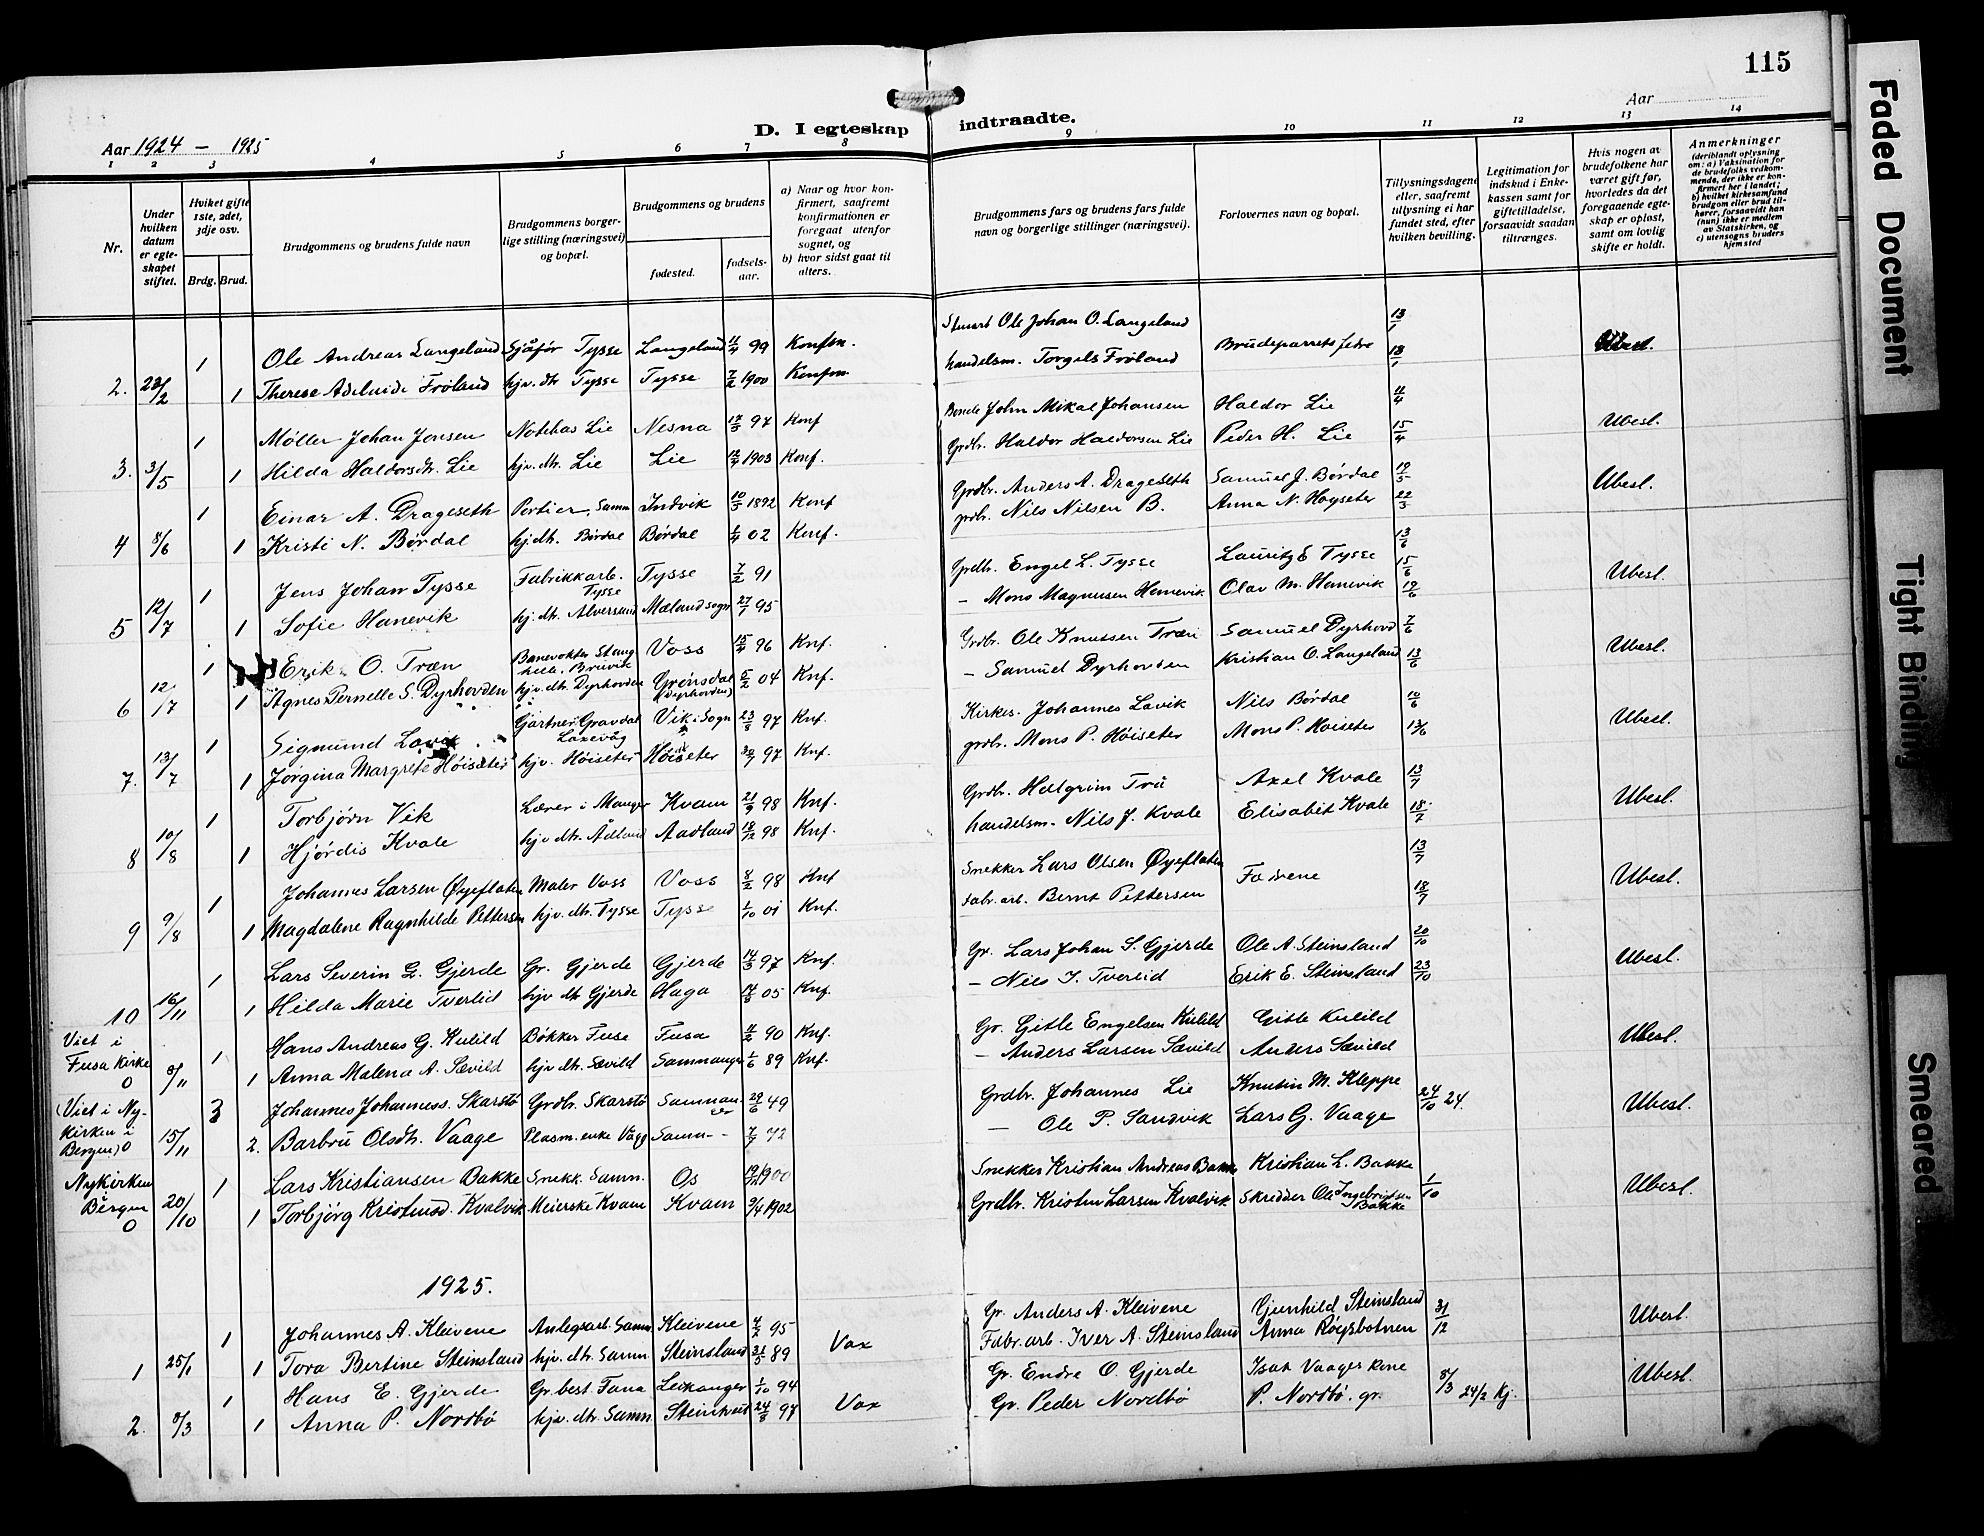 115
Aar 1924 — 1925
D. I egteskap indtraadte.
Aar
1 2 3 4 5 6 7 8 9 10 11 12 13 14
Nr.
Under hvilken datum er egteskapet stiftet.
Hviket gifte 1ste, 2det, 3dje osv.
Brdg. Brud.
Brudgommens og brudens fulde navn
Brudgommens borgerlige stilling (næringsvei) og bopæl.
Brudgommens og brudens
fødested.
fødselsaar.
a) Naar og hvor konfirmert, saafremt konfirmationen er foregaat utenfor sognet, og
b) hvor sidst gaat til alters.
Brudgommens fars og brudens fars fulde navn og borgerlige stillinger (næringsvei).
Forlovernes navn og bopæl.
Tillysningsdagene eller, saafremt tillysning ei har fundet sted, efter hvilken bevilling.
Legitimation for indskud i Enkekassen samt for giftetilladelse, forsaavidt saadan tiltrænges.
Hvis nogen av brudefolkene har været gift før, hvorledes da det foregaaende egteskap er opløst, samt om lovlig skifte er holdt.
Anmerkninger
(deriblandt oplysning om: a) Vaksination for de brudefolks vedkommende, der ikke er konfirmert her i landet; b) hvilket kirkesamfund brudgom eller brud tilhører, forsaavidt han (hun) ikke er medlem av Statskirken, og c) utensogns bruders hjemsted
1 Ole Andreas Langeland Sjåfør Tysse Langeland 11/4 99 Konfm. Stuart Ole Johan O. Langeland Brudeparrets fedre 13/1 Ubesl.
2. 23/2 1 Therese Adeluide Frøland hjv. dtr. Tysse Tysse 7/2 1900 Konfm. handelsm. Torgels Frøland 18/1
1 Møller Johan Jensen Notebas Lie Nesna 17/3 97 Konf Bonde John Mikal Johansen Haldor Lie 11/4 Ubesl.
3. 3/5 1 Hilda Haldorsdtr. Lie hjv. dtr. Lie Lie 12/4 1903 Konf. Grdbr. Haldor Haldorsen Lie Peder H. Lie 15/4
1 Einar A. Drageseth Portier, Samn Indvik 10/3 1892 Konf Grdbr. Anders A. Drageseth Samuel J. Børdal 19/5 Ubesl.
4 8/6 1 Kristi N. Børdal hj. dtr. Børdal Børdal 1/4 02 Konf. grdbr. Nils Nilsen B. Anna N. Høyseter 22/5
1 Jens Johan Tysse Fabrikkarb. Tysse Tysse 7/2 91 Grdbr. Engel L. Tysse Lauritz E Tysse 13/6 Ubesl.
5 12/7 1 Sofie Hanevik hj. dtr. Alversund Mæland sogn 27/1 95 – Mons Magnusen Hanevik Olav M. Hanevik 15/6 19/6
1 Erik O. Træn Banevokter Stanghelle, Bruvik Voss 15/4 96 Knf. Grdbr. Ole Knutsen Træn Samuel Dyrhovd 7/6 Ubesl.
6 12/7 1 Agnes Pernelle S. Dyrhovden hjv. dtr. Dyrhovden Grønsdal (Dyrhovden) 5/2 04 Knf. – Samuel Dyrhovden Kristian O. Langeland 13/6
1 Sigmund Lavik Gartner Gravdal Laxevåg Vik i Sogn 23/8 97 Knf. Kirkes. Johannes Lavik Nils Børdal 10/6 Ubesl.
7. 13/7 1 Jørgina Margrete Høiseter hjv. Høiseter Høiseter 30/7 97 Knf. grdbr. Mons P. Høiseter Mons P. Høiseter 13/6
1 Torbjørn Vik Lærer i Manger Kvam 21/9 98 Knf. Grdbr. Halgrim Tru Axel Kvale 13/7 Ubesl.
8 10/8 1 Hjørdis Kvale hjv dtr. Ådland Aadland 18/12 98 Knf. handelsm. Nils J. Kvale Elisabet Kvale 18/7
1 Johannes Larsen Øyeflaten Maler Voss Voss 8/2 98 Knf Snekker Lars Olsen Øyeflaten Fedrene 13/7 Ubesl.
9 9/8 1 Magdalene Ragnhilde Pettersen hjv. dtr. Tysse Tysse 1/10 01 Knf. Fabr. arb. Bernt Pettersen 18/7
1 Lars Severin L. Gjerde Gr. Gjerde Gjerde 14/3 97 Knf. Gr. Lars Johan S. Gjerde Ole A. Steinsland 20/10 Ubesl.
10 16/11 1 Hilda Marie Tverlid hjv dtr Gjerde Haga 17/8 05 Knf. – Nils I. Tverlid Erik E. Steinsland 23/10
Viet i Fusa kirke
1 Hans Andreas G. Kulild Bøkker Fusa Fusa 11/2 90 Knf. Gr. Gitle Engelsen Kulild Gitle Kulild Ubesl.
0 8/11 1 Anna Malena A. Sævild hjv dtr. Sævild Samnanger 1/6 89 Knf. – Anders Larsen Sævild Anders Sævild
(Viet i Nykirken i Bergen)
3 Johannes Johanness. Skarstø Grdbr. Skarstø Samnanger 29/6 49 Grdbr. Johannes Lie Knutin M. Kleppe 24/10 24. Ubesl.
0 15/11 2. Barbru Olsdtr. Vaage Plasm. enke Vaag Samn– 7/7 72 – Ole P. Sandvik Lars G. Vaage
Nykirken Bergen
1 Lars Kristiansen Bakke Snekk. Samn. Os 19/12 1900 Snekker Kristian Andreas Bakke Kristian L. Bakke 1/10 Ubesl.
0 20/10 1 Torbjørg Kristensd. Kvalvik Meierske Kvam Kvam 9/4 1902 Grdbr. Kristen Larsen Kvalvik Skredder Ole Ingebrigtsen Bakke
1925.
1 Johannes A. Kleivene Anlegsarb. Samn. Kleivene 4/2 95 Gr. Anders A. Kleivene Gunhild Steinsland 31/12 Ubesl.
1 25/1 1 Tora Bertine Steinsland hjv. dtr. Samn. Steinsland 31/5 89 Vax Fabr. arb. Iver A. Steinsland Anna Røysbotnen
1 Hans E. Gjerde Gr. best. Fana Leikanger 1/10 94 Gr. Endre O. Gjerde Isak Vaages kone 8/3 24/2 Kj. Ubesl.
2. 8/3 1 Anna P. Nordbø hjv. dtr. Samn. 24/8 97 Vax Gr. Peder Nordbø P. Nordbø. gr.
Faded Document
Tight Binding
Smeared